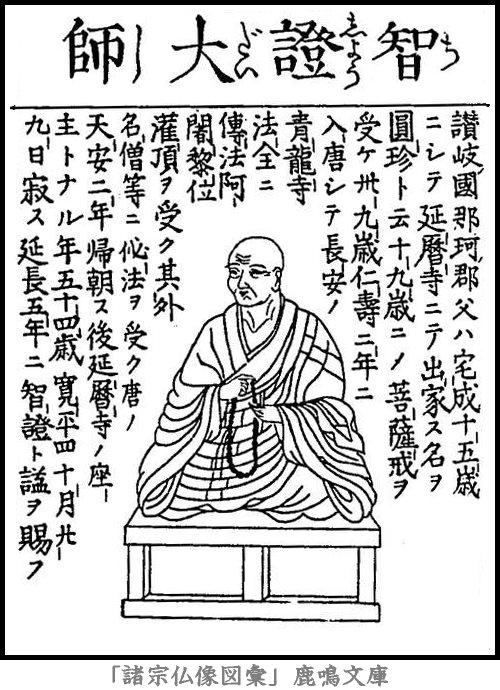 智證大師
ちしようだいし
讃岐國那珂郡父ハ宅成十五歳
ニシテ延暦寺ニテ出家ス名ヲ
圓珍ト云十九歳ニノ菩薩戒ヲ
受ケ卅九歳仁壽二年ニ
入唐シテ長安ノ
青龍寺
法全ニ
傳法阿
闍黎位
灌頂ヲ受ク其外
名僧等ニ祕法ヲ受ク唐ノ
天安二年帰朝ス後延暦寺ノ座
主トナル年五十四歳寛平四十月廿
九日寂ス延長五年ニ智證ト謚ヲ賜フ
「諸宗仏像図彙」鹿鳴文庫